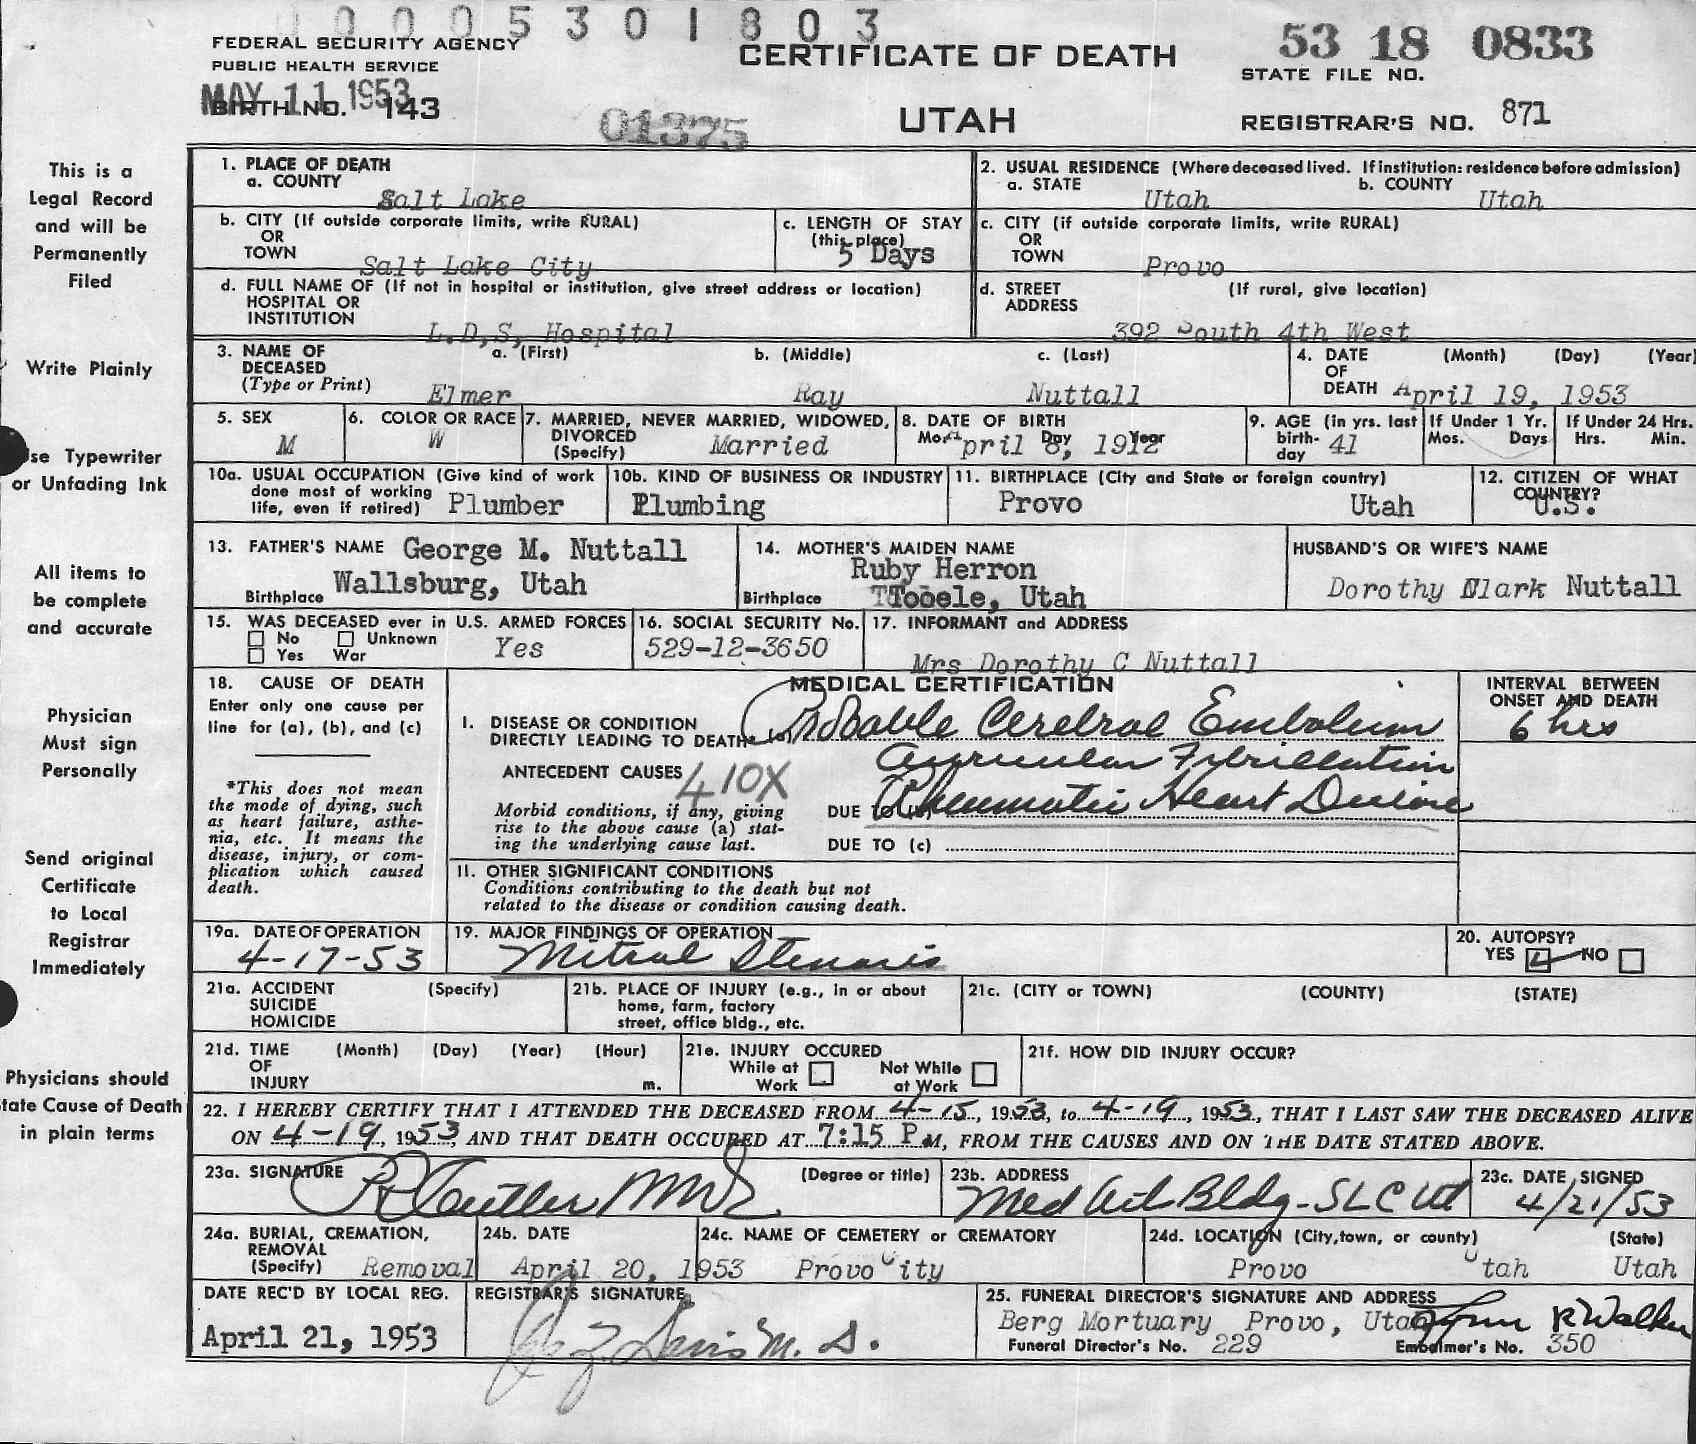 0005301803
FEDERAL SECURITY AGENCY
PUBLIC HEALTH SERVICE
CERTIFICATE OF DEATH
53 18 0833
STATE FILE NO.
MAY 11 1953
BIRTH NO. 143
01375
UTAH
REGISTRAR'S NO. 871
This is a
Legal Record
and will be
Permanently
Filed
Write Plainly
se Typewriter
or Unfading Ink
All items to
be complete
and accurate
Physician
Must sign
Personally
Send original
Certificate
to Local
Registrar
Immediately
Physicians should
tate Cause of Death
in plain terms
1. PLACE OF DEATH
a. COUNTY
Salt Lake
2. USUAL RESIDENCE (Where deceased lived. If institution: residence before admission)
a. STATE Utah b. COUNTY Utah
b. CITY (If outside corporate limits, write RURAL)
OR
TOWN
Salt Lake City
c. LENGTH OF STAY
(this place)
5 Days
c. CITY (if outside corporate limits, write RURAL)
OR
TOWN
Provo
d. FULL NAME OF (If not in hospital or institution, give street address or location)
HOSPITAL OR
INSTITUTION
L.D,S, Hospital
d. STREET (If rural, give location)
ADDRESS
392 South 4th West
3. NAME OF DECEASED
(Type or Print)
a. (First) b. (Middle) c. (Last)
Elmer Ray Nuttall
4. DATE (Month) (Day) (Year)
OF
DEATH April 19, 1953
5. SEX
M
6. COLOR OR RACE
W
7. MARRIED, NEVER MARRIED, WIDOWED,
DIVORCED
(Specify) Married
8. DATE OF BIRTH
Mo. Day Year
April 8, 1912
9. AGE (in yrs. last
birth-
day 41
If Under 1 Yr.
Mos. Days
If Under 24 Hrs.
Hrs. Min.
10a. USUAL OCCUPATION (Give kind of work
done most of working
life, even if retired) Plumber
10b. KIND OF BUSINESS OR INDUSTRY
Plumbing
11. BIRTHPLACE (City and State or foreign country)
Provo Utah
12. CITIZEN OF WHAT
COUNTRY?
U.S.
13. FATHER'S NAME George M. Nuttall
Birthplace Wallsburg, Utah
14. MOTHER'S MAIDEN NAME
Ruby Herron
Birthplace Tooele, Utah
HUSBAND'S OR WIFE'S NAME
Dorothy Clark Nuttall
15. WAS DECEASED ever in U.S. ARMED FORCES
No Unknown
Yes War
Yes
16. SOCIAL SECURITY No.
529-12-3650
17. INFORMANT and ADDRESS
Mrs Dorothy C Nuttall
18. CAUSE OF DEATH
Enter only one cause per
line for (a), (b), and (c)
*This does not mean
the mode of dying, such
as heart failure, asthe-
nia, etc. It means the
disease, injury, or com-
plication which caused
death.
MEDICAL CERTIFICATION
I. DISEASE OR CONDITION
DIRECTLY LEADING TO DEATH*
Probable Cerebral Embolum
Auricular Fibrillation
ANTECEDENT CAUSES 410X
Morbid conditions, if any, giving
rise to the above cause (a) stat-
ing the underlying cause last.
DUE TO (b) Rheumatic Heart Disease
DUE TO (c)
INTERVAL BETWEEN
ONSET AND DEATH
6 hrs
II. OTHER SIGNIFICANT CONDITIONS
Conditions contributing to the death but not
related to the disease or condition causing death.
19a. DATE OF OPERATION
4-17-53
19. MAJOR FINDINGS OF OPERATION
Mitral Stenosis
20. AUTOPSY?
YES NO
21a. ACCIDENT (Specify)
SUICIDE
HOMICIDE
21b. PLACE OF INJURY (e.g., in or about
home, farm, factory
street, office bldg., etc.
21c. (CITY or TOWN) (COUNTY) (STATE)
21d. TIME (Month) (Day) (Year) (Hour)
OF
INJURY m.
21e. INJURY OCCURED
While at Work Not While at Work
21f. HOW DID INJURY OCCUR?
22. I HEREBY CERTIFY THAT I ATTENDED THE DECEASED FROM 4-15, 1953, to 4-19, 1953, THAT I LAST SAW THE DECEASED ALIVE
ON 4-19, 1953, AND THAT DEATH OCCURED AT 7:15 P.M, FROM THE CAUSES AND ON THE DATE STATED ABOVE.
23a. SIGNATURE (Degree or title)
Cutler MD
23b. ADDRESS
Med Art Bldg-SLC Ut
23c. DATE SIGNED
4/21/53
24a. BURIAL, CREMATION,
REMOVAL
(Specify) Removal
24b. DATE
April 20, 1953
24c. NAME OF CEMETERY or CREMATORY
Provo City
24d. LOCATION (City, town, or county) (State)
Provo Utah Utah
DATE REC'D BY LOCAL REG.
April 21, 1953
REGISTRAR'S SIGNATURE
M. D.
25. FUNERAL DIRECTOR'S SIGNATURE AND ADDRESS
Berg Mortuary Provo, Utah Lynn R Walker
Funeral Director's No. 229 Embalmer's No. 350